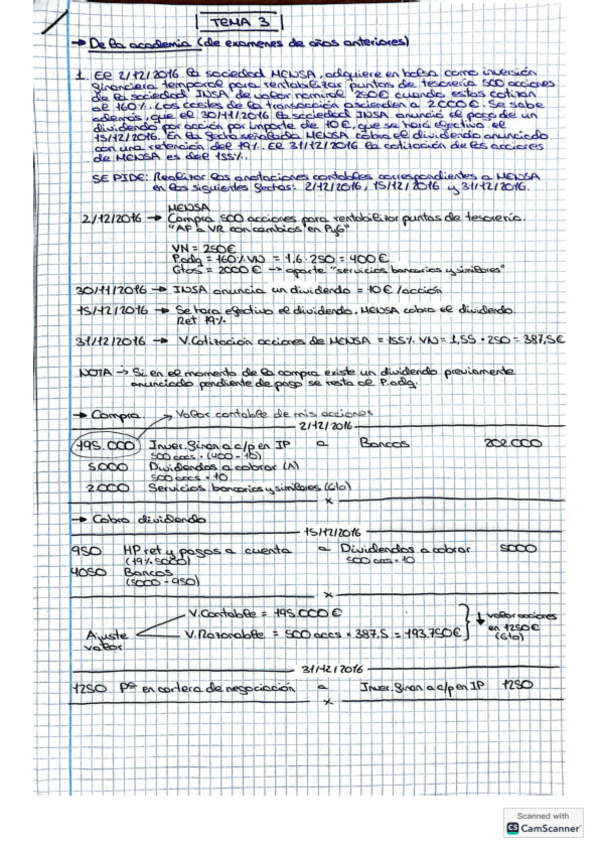 TEMA 3
→ De la academia (de examenes de años anteriores)
1. El 2/12/2016 la sociedad MENSA, adquiere en bolsa como inversión
financiera temporal para rentabilizar puntas de tesorería 500 acciones
de la sociedad INSA de valor nominal 250€ cuando estas cotizan
al 160%. Los costes de la transacción ascienden a 2000€. Se sabe
además, que el 30/11/2016 la sociedad INSA anunció el pago de un
dividendo por acción por importe de 10€, que se hará efectivo el
15/12/2016. En la fecha señalada MENSA cobra el dividendo anunciado
con una retención del 19%. El 31/12/2016 la cotización de las acciones
de MENSA es del 155%.
SE PIDE: Realizar las anotaciones contables correspondientes a MENSA
en las siguientes fechas: 2/12/2016, 15/12/2016 y 31/12/2016.
MENSA
2/12/2016 → Compra 500 acciones para rentabilizar puntas de tesorería.
"AF a VR con cambios en PyG"
VN = 250€
P.adq = 160% VN = 1,6 · 250 = 400€
Gtos = 2000€ → aparte "servicios bancarios y similares"
30/11/2016 → INSA anuncia un dividendo = 10€/acción
15/12/2016 → Se hara efectivo el dividendo. MENSA cobra el dividendo
Ret 19%
31/12/2016 → V.Cotización acciones de MENSA = 155% VN = 1,55 · 250 = 387,5€
NOTA → Si en el momento de la compra existe un dividendo previamente
anunciado pendiente de pago se resta al P.adq.
→ Compra. → Valor contable de mis acciones
2/12/2016
195.000 Inver. finan a c/p en IP a Bancos 202.000
500 accs · (400 - 10)
5.000 Dividendos a cobrar (A)
500 accs · 10
2.000 Servicios bancarios y similares (Gto)
x
→ Cobro dividendo
15/12/2016
950 HP ret y pagos a cuenta a Dividendos a cobrar 5000
(19% 5000) 500 accs · 10
4050 Bancos
(5000 - 950)
x
V.Contable = 195.000€
Ajuste valor V.Razonable = 500 accs · 387,5 = 193.750€ ↓ valor acciones
en 1250€
(Gto)
31/12/2016
1250 Pª en cartera de negociación a Inver. finan a c/p en IP 1250
x
Scanned with
CS CamScanner